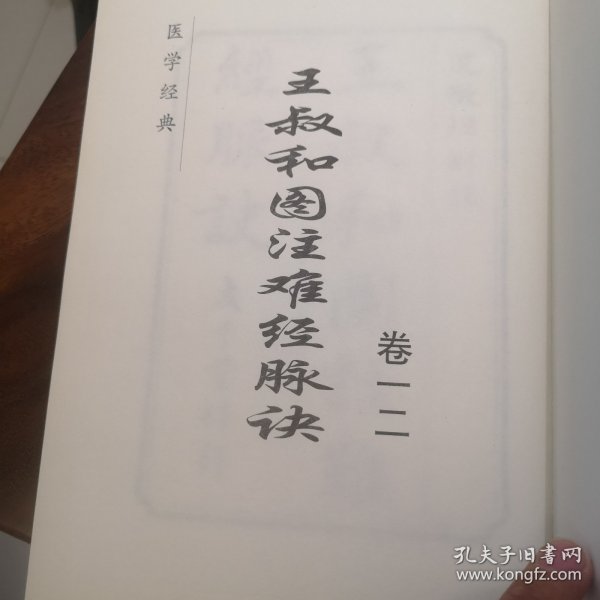 医学经典
王叔和图注难经脉诀
卷一二
孔夫子旧书网
www.kongfz.com